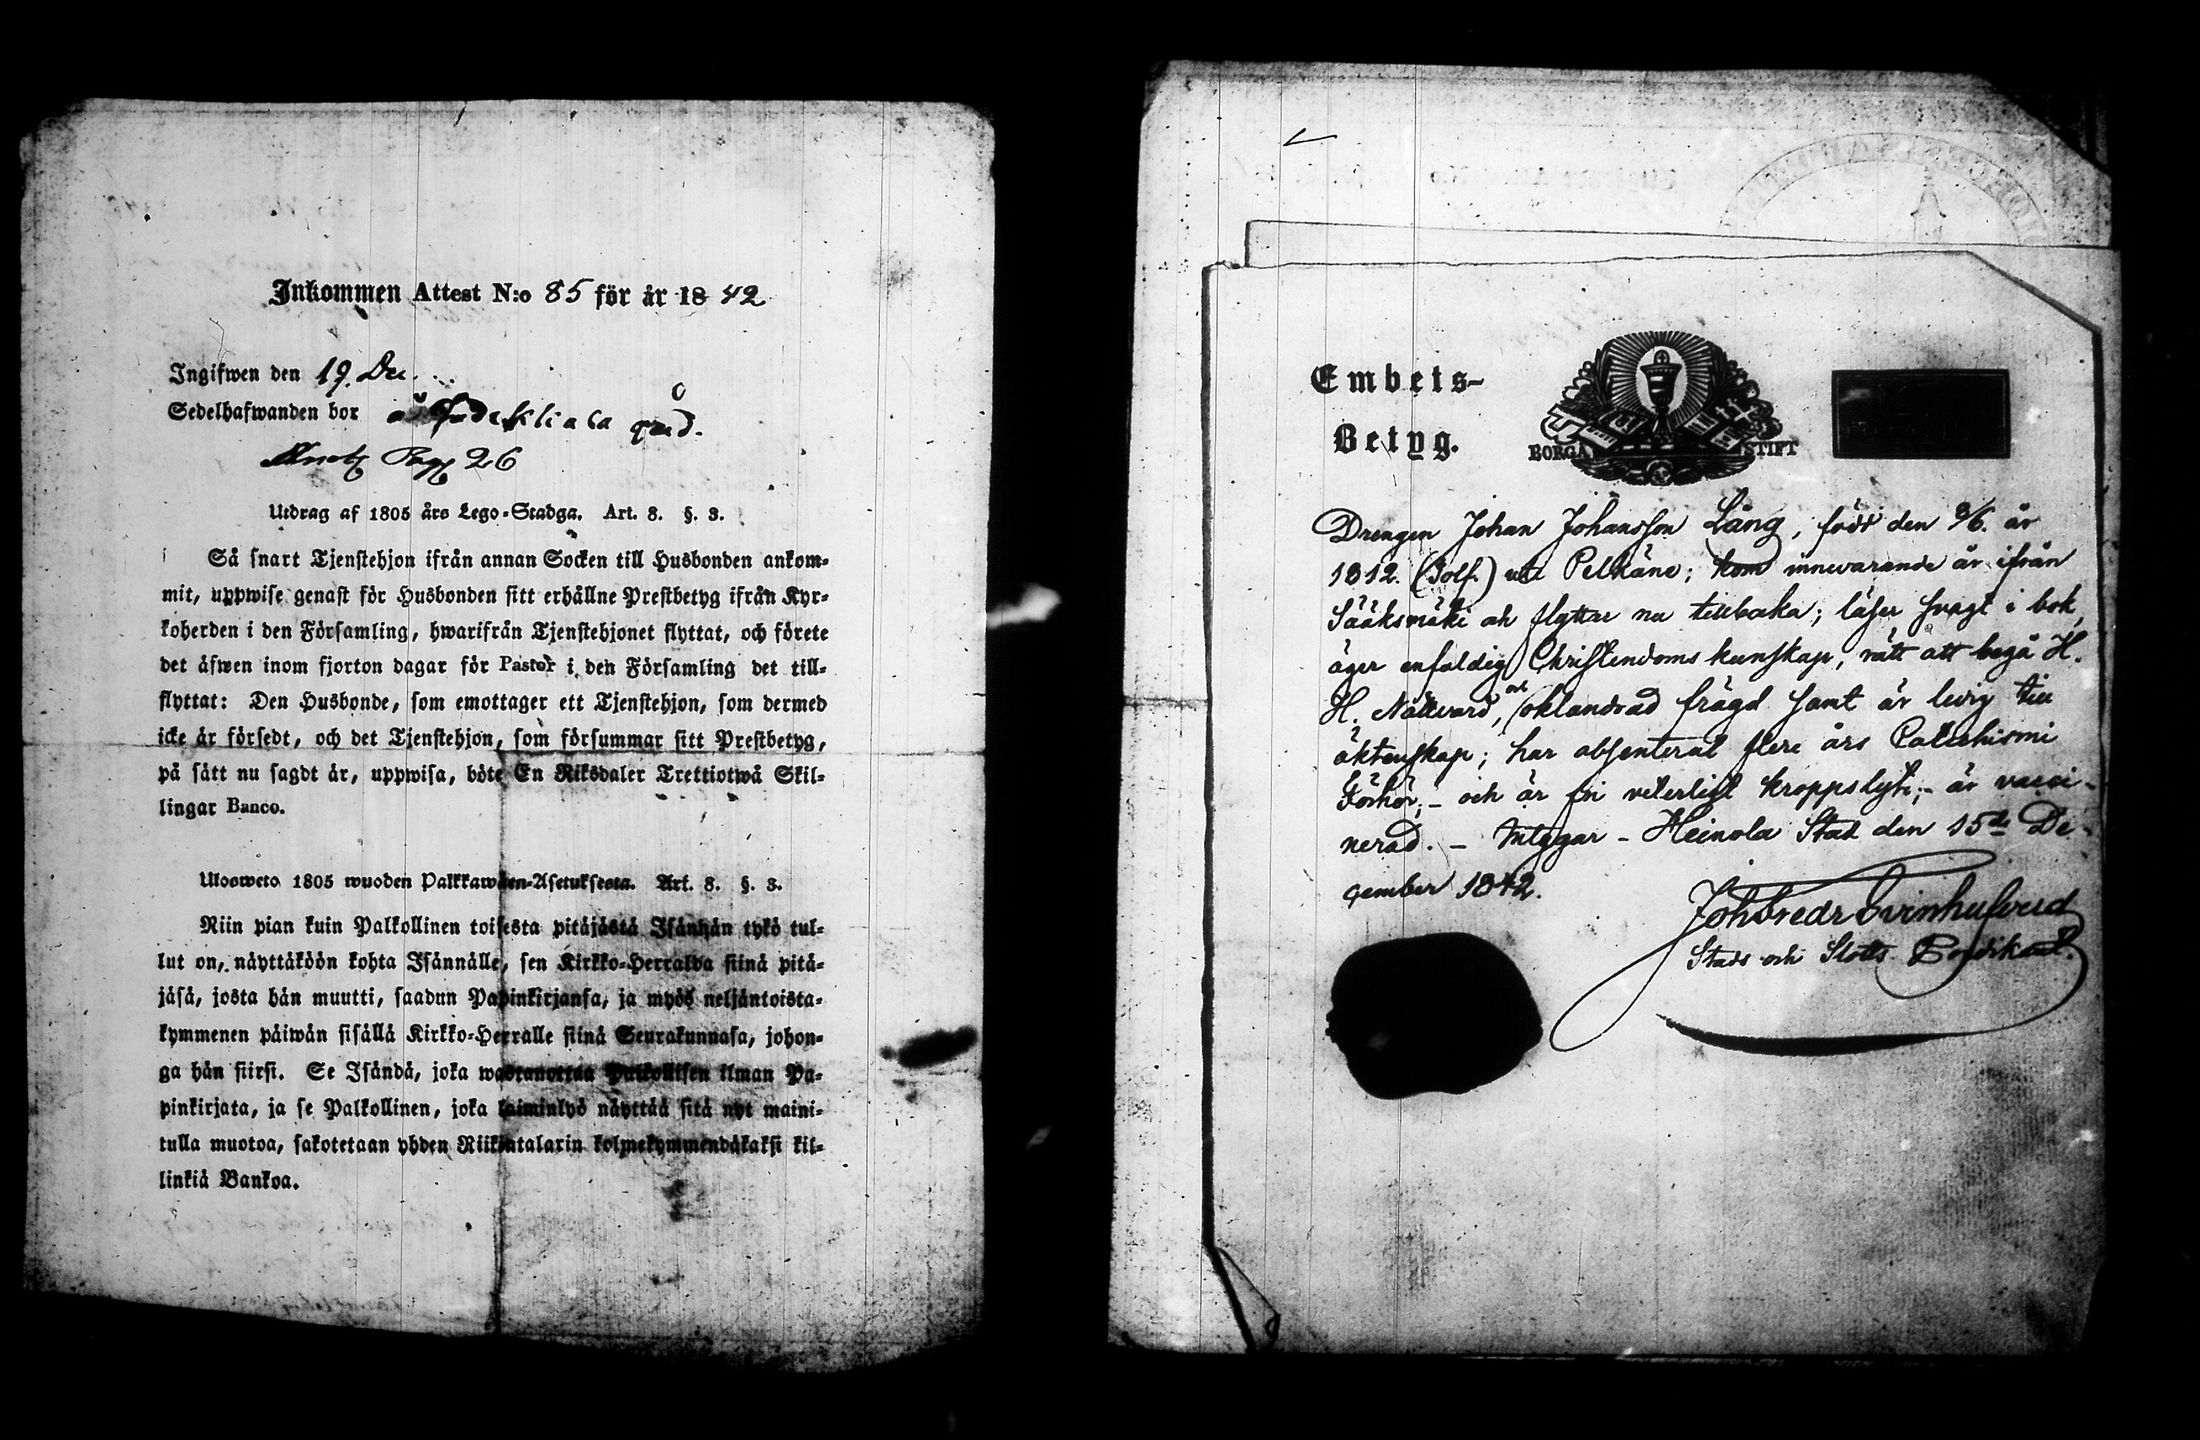 Inkommen Attest N:o 85 för år 18 42
Ingifwen den 19. Dec.
Sedelhafwanden bor å
Pag 26
Utdrag af 1805 års Lego-Stadga. Art. 8. §. 3.
Så snart Tjenstehjon ifrån annan Socken till Husbonden ankom-
mit, uppwise genast för Husbonden sitt erhållne Prestbetyg ifrån Kyr-
koherden i den Församling, hwarifrån Tjenstehjonet flyttat, och förete
det äfwen inom fjorton dagar för Pastor i den Församling det till-
flyttat: Den Husbonde, som emottager ett Tjenstehjon, som dermed
icke är försedt, och det Tjenstehjon, som försummar sitt Prestbetyg,
på sätt nu sagdt är, uppwisa, böte En Riksdaler Trettiotwå Skil-
lingar Banco.
Ulosweto 1805 wuoden Palkkawäen-Asetuksesta. Art. 8. §. 3.
Niin pian kuin Palkollinen toisesta pitäjästä Isännän tykö tul-
lut on, näyttäköön kohta Isännälle, sen Kirkko-Herralda siinä pitä-
jäsä, josta hän muutti, saadun Papinkirjansa, ja myös neljäntoista-
kymmenen päiwän sisällä Kirkko-Herralle siinä Seurakunnasa, johon-
ga hän siirsi. Se Isändä, joka wastanottaa Palkollisen ilman Pa-
pinkirjata, ja se Palkollinen, joka laiminlyö näyttää sitä nyt maini-
tulla muotoa, sakotetaan yhden Riikintalarin kolmekymmendäkaksi kil-
linkiä Bankoa.
Embets-
Betyg.
BORGÅ STIFT
Drengen Johan Johansson Lång, född den 9/6. år
1812. (Tolf.) uti Pelkäne; kom innevarande år ifrån
Sääksmäki och flyttar nu tillbaka; läser svagt i bok,
äger enfaldig Christendoms kunskap, rätt att begå H.
H. Nattvard, och oklandrad frägd samt är ledig till
äktenskap; har absenterat flere års Catechismi
Förhör; - och är fri veterligt kroppslyte; - är vacci-
nerad. - Intygar - Heinola Stad den 15de De-
cember 1842.
Joh Fredr Svinhufvud
Stads och Slotts Predikant.